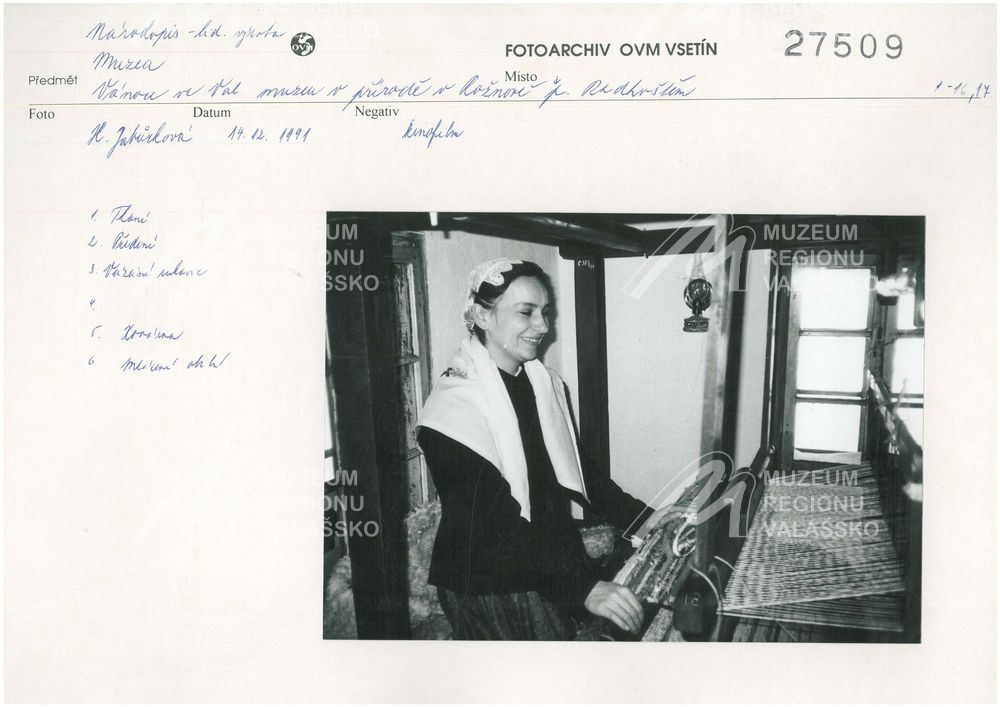 Národopis - lid. výroba
OVM
FOTOARCHIV OVM VSETÍN
27509
Muzea
Předmět
Místo
Vánoce ve Val. muzeu v přírodě v Rožnově p. Radhoštěm
1-16,17
Foto
Datum
Negativ
H. Jabůrková 14. 12. 1991 kinofilm
1. Tkaní
2. Předení
3. Vázání
4.
5. Kovárna
6.
MUZEUM
REGIONU
VALAŠSKO
MUZEUM
REGIONU
VALAŠSKO
MUZEUM
REGIONU
VALAŠSKO
MUZEUM
REGIONU
VALAŠSKO